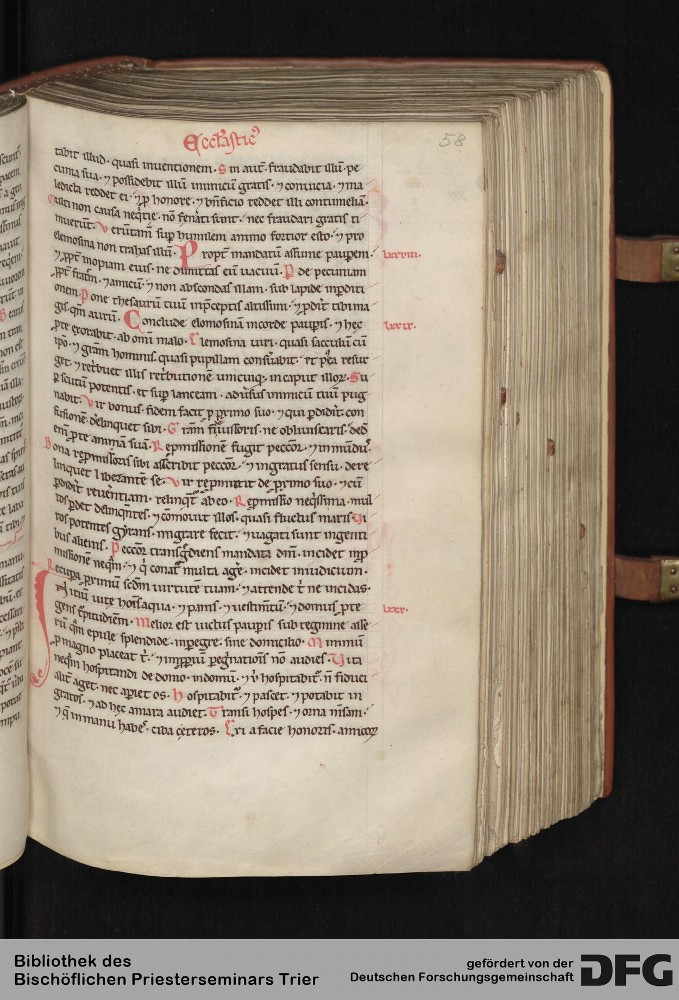 Eccl'astic9
58
tabit illud. quasi inuentionem. Sin aut̄. fraudabit illū. pe
cunia sua. ⁊ possidebit illū inimicū gratis. ⁊ conuicia. ⁊ ma
ledicta reddet ei. ⁊ ꝓ honore. ⁊ bn̄ficio reddet illi contumeliā.
Multi non causa neq̄tie. nō fen̄ati sunt. nec fraudari gratis ti
muerūt. Verūtam̄ sup humilem animo fortior esto. ⁊ pro
elemosina non trahas illū. Propt̄ mandatū assume paupem.
lxxviii.
⁊ ꝓpt̄ inopiam eius. ne dimittas eū uacuū. Pde pecuniam
ꝓpt̄ fratrē. ⁊ amicū. ⁊ non abscondas illam. sub lapide inꝑditi
onem. Pone thesaurū tuū inp̄ceptis altissimi. ⁊ ꝓdit̄ tibi ma
gis. qm̄ aurū. Conclude elemosinā incorde paupis. ⁊ hec
lxxix.
ꝓ te exorabit. ab omi malo. Elemosina uiri. quasi sacculū cū
ipō. ⁊ gr̄am hominis. quasi pupillam cons̄uabit. et p̄ea resur
get. ⁊ ret̄buet illis ret̄butionē unicuiq;. in caput illoꝝ. Su
p scutū potentis. ⁊ sup lanceam. aduersus inimicū tuū pug
nabit. Vir bonus. fidem facit ꝓ ꝓximo suo. ⁊ qui ꝑdidit con
fusionē. delinquet sibi. Gr̄am fideiussoris. ne obliuiscaris. ded̄
enī ꝓ te animā suā. Repmissorē fugit peccor̄. ⁊ inmūdus.
Bona repmissoris sibi asscribit peccor̄. ⁊ ingratus sensu. dere
linquet liberantē se. Vir repmittit de ꝓximo suo. ⁊ cū
ꝑdidit̄ reuerentiam. relinqt̄ ab eo. Repmissio neq̄ssima. mul
tos ꝑdet delinq̄ntes. ⁊ cōmouit illos. quasi fluctus maris. Vi
ros potentes gyrans. migrare fecit. ⁊ uagati sunt in genti
bus alienis. Peccor̄ transgrediens mandata dnī. incidet inp
missionē neq̄m. ⁊ q̄ conat̄ multa agere. incidet iniudicium.
Recupa ꝓximū scd̄m uirtutē tuam. ⁊ attende t̄ ne incidas.
Initiū uite hoīs aqua. ⁊ panis. ⁊ uestim̄tū. ⁊ domus ꝓte
lxxx.
gens t̄pitudinem. Melior est uictus paupis sub tegmine asse
rū. qm̄ epule splendide. inpegre. sine domicilio. Minimū
ꝓ magno placeat t̄. ⁊ inꝓpiū peg̃nationis nō audies. Vita
neq̄m hospitandi de domo. indomū. ⁊ ubi hospitabit̄. n̄ fiduci
alit̄ aget. nec apiet os. Hospitabit̄. ⁊ pascet. ⁊ potabit in
gratos. ⁊ ad hec amara audiet. Transi hospes. ⁊ orna m̄sam.
⁊ q̄ in manu habes. ciba ceteros. Exi a facie honoris. amicoꝝ
Bibliothek des
Bischöflichen Priesterseminars Trier
gefördert von der
Deutschen Forschungsgemeinschaft
DFG